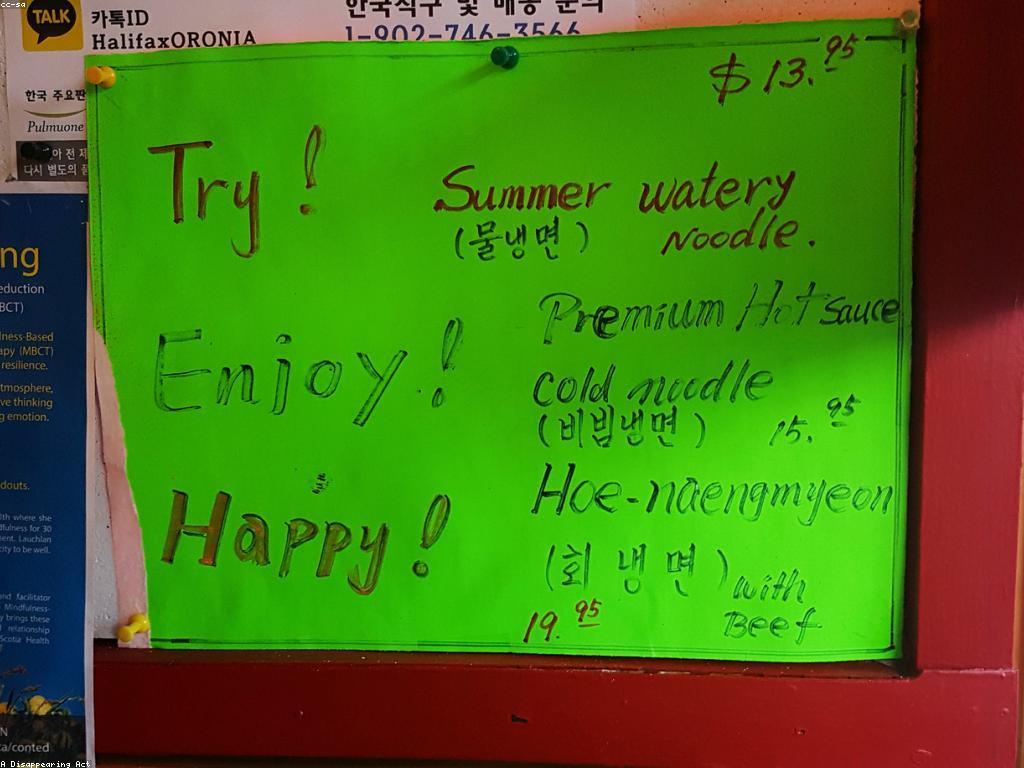 cc-sa
TALK
카톡ID
HalifaxORONIA
한국식구 및 배송 문의
1-902-746-3566
한국 주요판
Pulmuone
아 전 제
다시 별도의 품
$ 13.95
Try!
Summer watery
(물냉면)
Noodle.
Premium Hot Sauce
Enjoy!
Cold noodle
(비빔냉면)
15.95
Hoe-naengmyeon
Happy!
(회 냉 면)
with
Beef
19.95
ng
eduction
BCT)
lness-Based
apy (MBCT)
resilience.
tmosphere,
ve thinking
g emotion.
douts.
lth where she
dfulness for 30
ment. Lauchlan
city to be well.
and facilitator
Mindfulness-
y brings these
d relationship
Scotia Health
N
ca/conted
A Disappearing Act